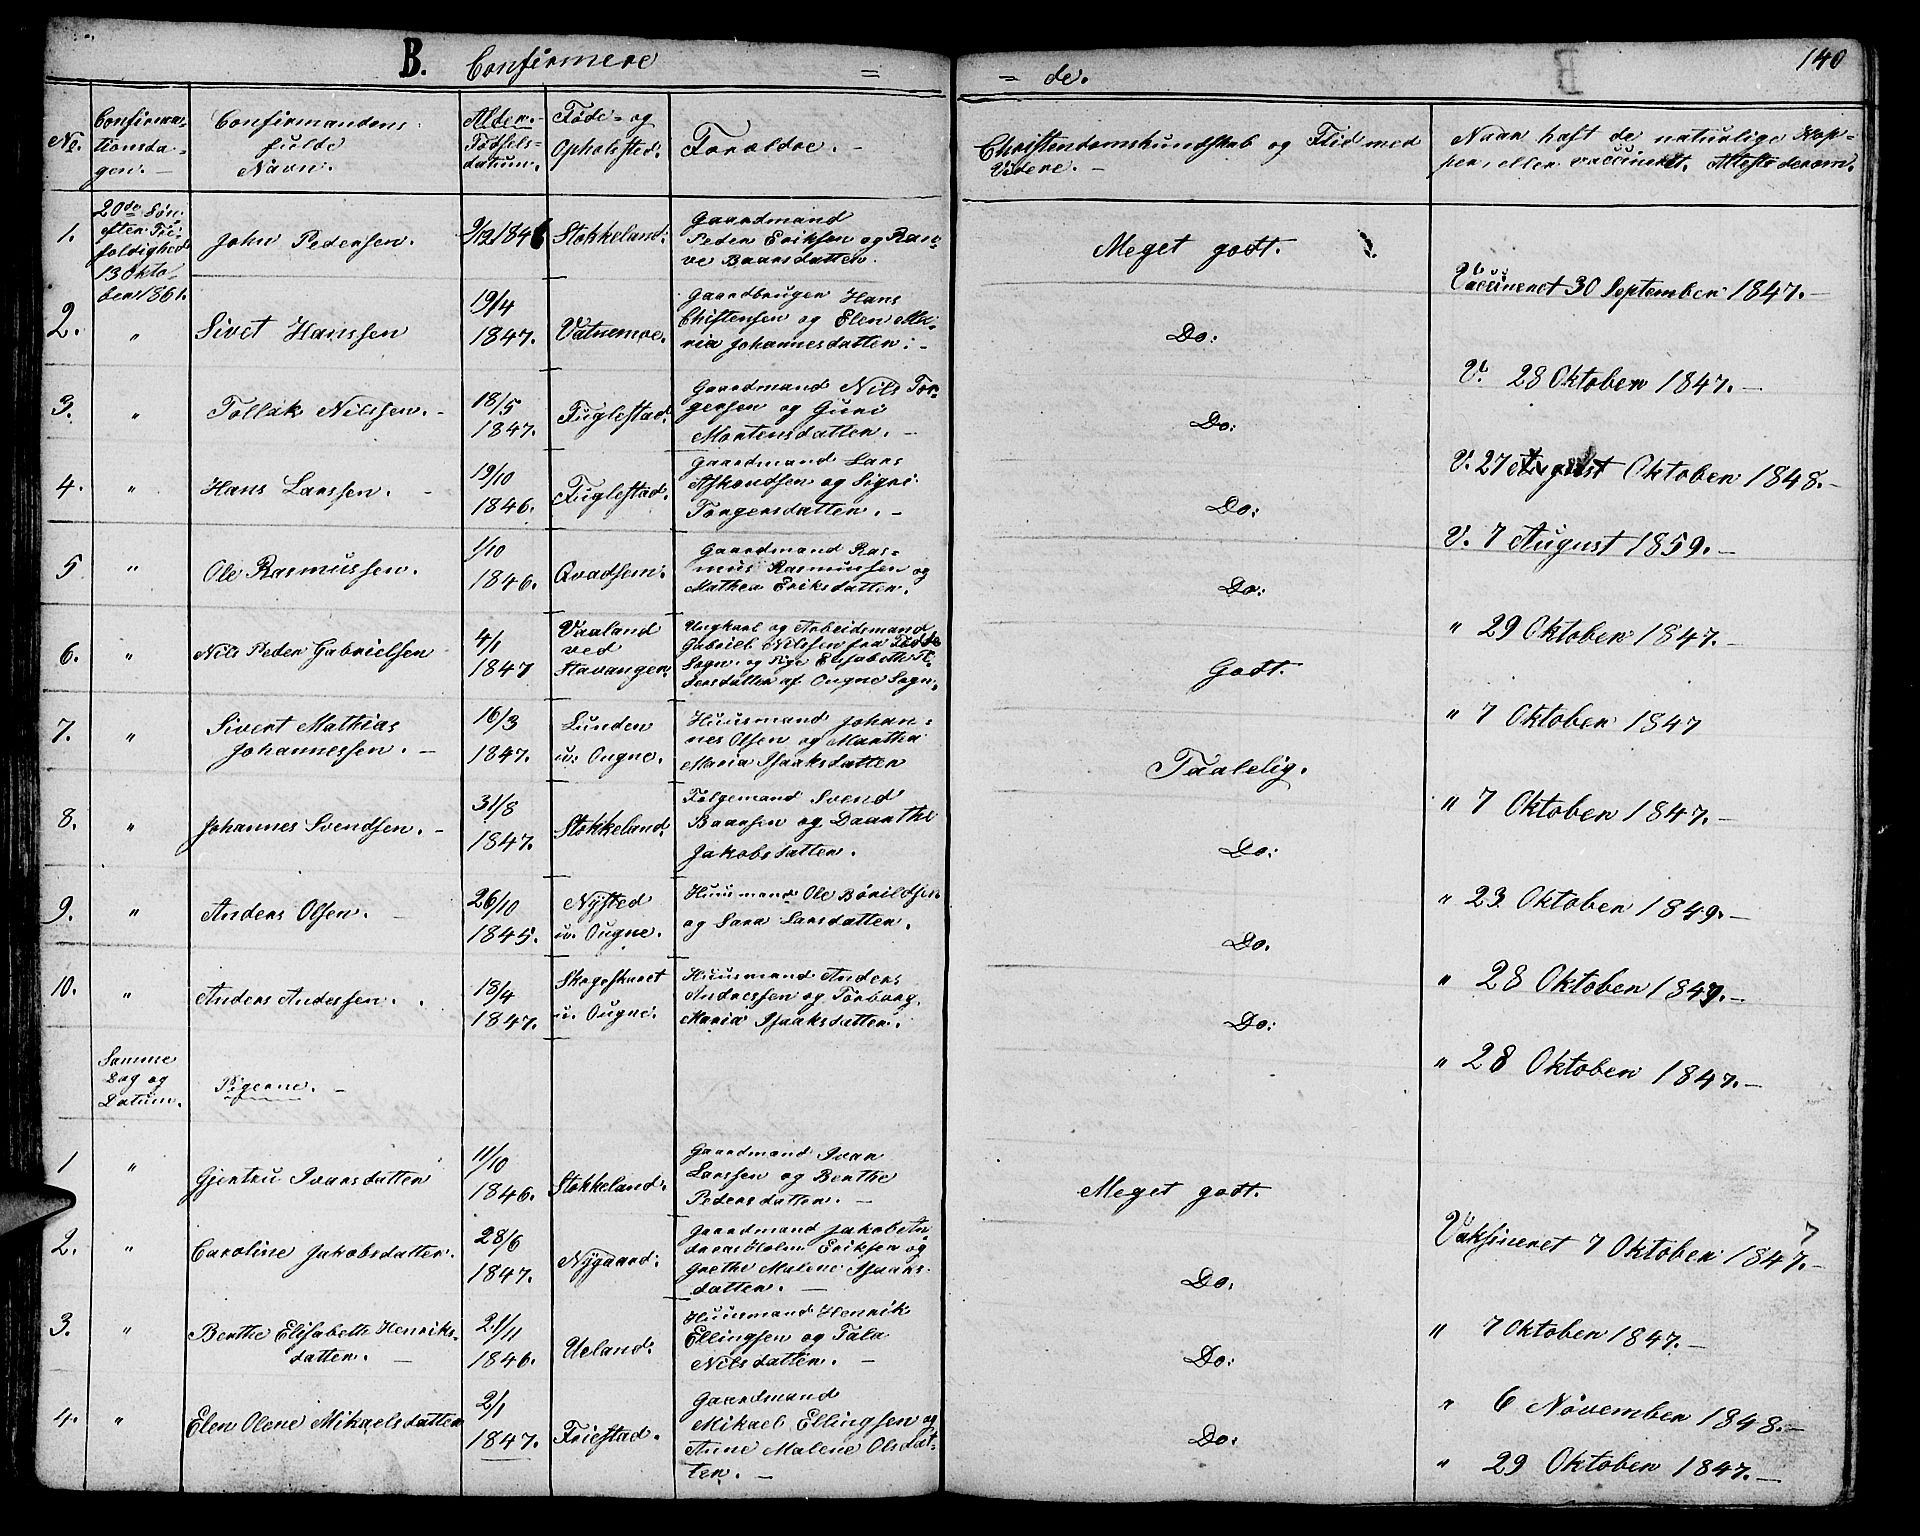 B. Confirmere = = de. 140
No.
Confirma-
tionsda-
gen. -
Confirmandens
fulde
Navn.
Alder.-
Fødsels-
datum.
Føde- og
Opholdsted.
Forældre. -
Christendomskundskab og Flid med
Videre. -
Naar haft de naturlige Kop-
per, eller vaccineret. Attest derom.
1.
20de Søn.
efter Tre-
foldighed
13 Okto-
ber 1861.
John Pedersen.
9/12 1846
Stokkeland.
Gaardmand
Peder Eriksen og Ran-
ve Baarsdatter.
Meget godt.
Vaccineret 30 September 1847. -
2. "
Sivet Hanssen
19/4
1847.
Vatnemoe.
Gaardbruger Hans
Chistensen og Elen Ma-
ria Johannesdatter. -
Do:
V. 28 Oktober 1847. -
3. "
Tollak Nilssen. -
18/5
1847.
Fuglestad.
Gaardmand Nils Tor-
gersen og Guri
Mortensdatter. -
Do:
V. 27 August Oktober 1848. -
4. "
Hans Larssen. -
19/10
1846.
Fuglestad.
Gaardmand Lars
Torgersdatter. -
Do:
V. 7 August 1859. -
5 "
Ole Rasmussen.
1/10
1846.
Qvadsem.
Gaardmand Ras-
mus Rasmussen og
Mathea Eriksdatter.
Do:
" 29 Oktober 1847. -
6. "
Nils Peder Gabrielsen
4/1
1847
Vaaland
ved
Stavanger.
Ungkarl og Arbeidsmand
Gabriel Nilssen fra
Sogn. og Pige Elisabeth
af Ougne Sogn.
Godt.
" 7 Oktober 1847
7. "
Sivert Mathias
Johannessen. -
16/3
1847.
Lunden
u. Ougne.
Huusmand Johan-
nes Olsen og Martha
Maria Isaaksdatter
Taalelig.
" 7 Oktober 1847. -
8. "
Johannes Svendsen. -
31/8
1847.
Stokkeland.
Følgemand Svend
Baarsen og Daarthe
Jakobsdatter.
Do:
" 23 Oktober 1849. -
9. "
Anders Olsen. -
26/10
1845.
Nysted
u. Ougne.
Huusmand Ole Børildsen
og Sara Larsdatter.
Do.
" 28 Oktober 1847. -
10. "
Anders Andessen.
18/4
1847.
u. Ougne.
Huusmand Anders
Andressen og Torborg
Maria Isaaksdatter.
Do:
" 28 Oktober 1847. -
Samme
Dag og
Datum.
Pigerne. -
1 "
Gjertru Ivarsdatter
11/10
1846.
Stokkeland.
Gaardmand Ivar
Larssen og Berthe
Pedersdatter. -
Meget godt.
Vaksineret 7 Oktober 1847. -
7
2. "
Caroline Jakobsdatter.
28/6
1847.
Nygaard.
Gaardmand Jakob An-
dreas Holm Eriksen og
Grethe Malene Isaaks-
datter. -
Do:
" 7 Oktober 1847. -
3. "
Berthe Elisabeth Henriks-
datter. -
21/11
1846.
Ueland.
Huusmand Henrik
Ellingsen og Tala
Nilsdatter. -
Do:
" 6 November 1848. -
4. "
Elen Olene Mikaelsdatter
2/1
1847.
Friestad.
Gaardmand
Mikael Ellingsen og
Anne Malene Olsdat-
ter. -
Do:
" 29 Oktober 1847. -